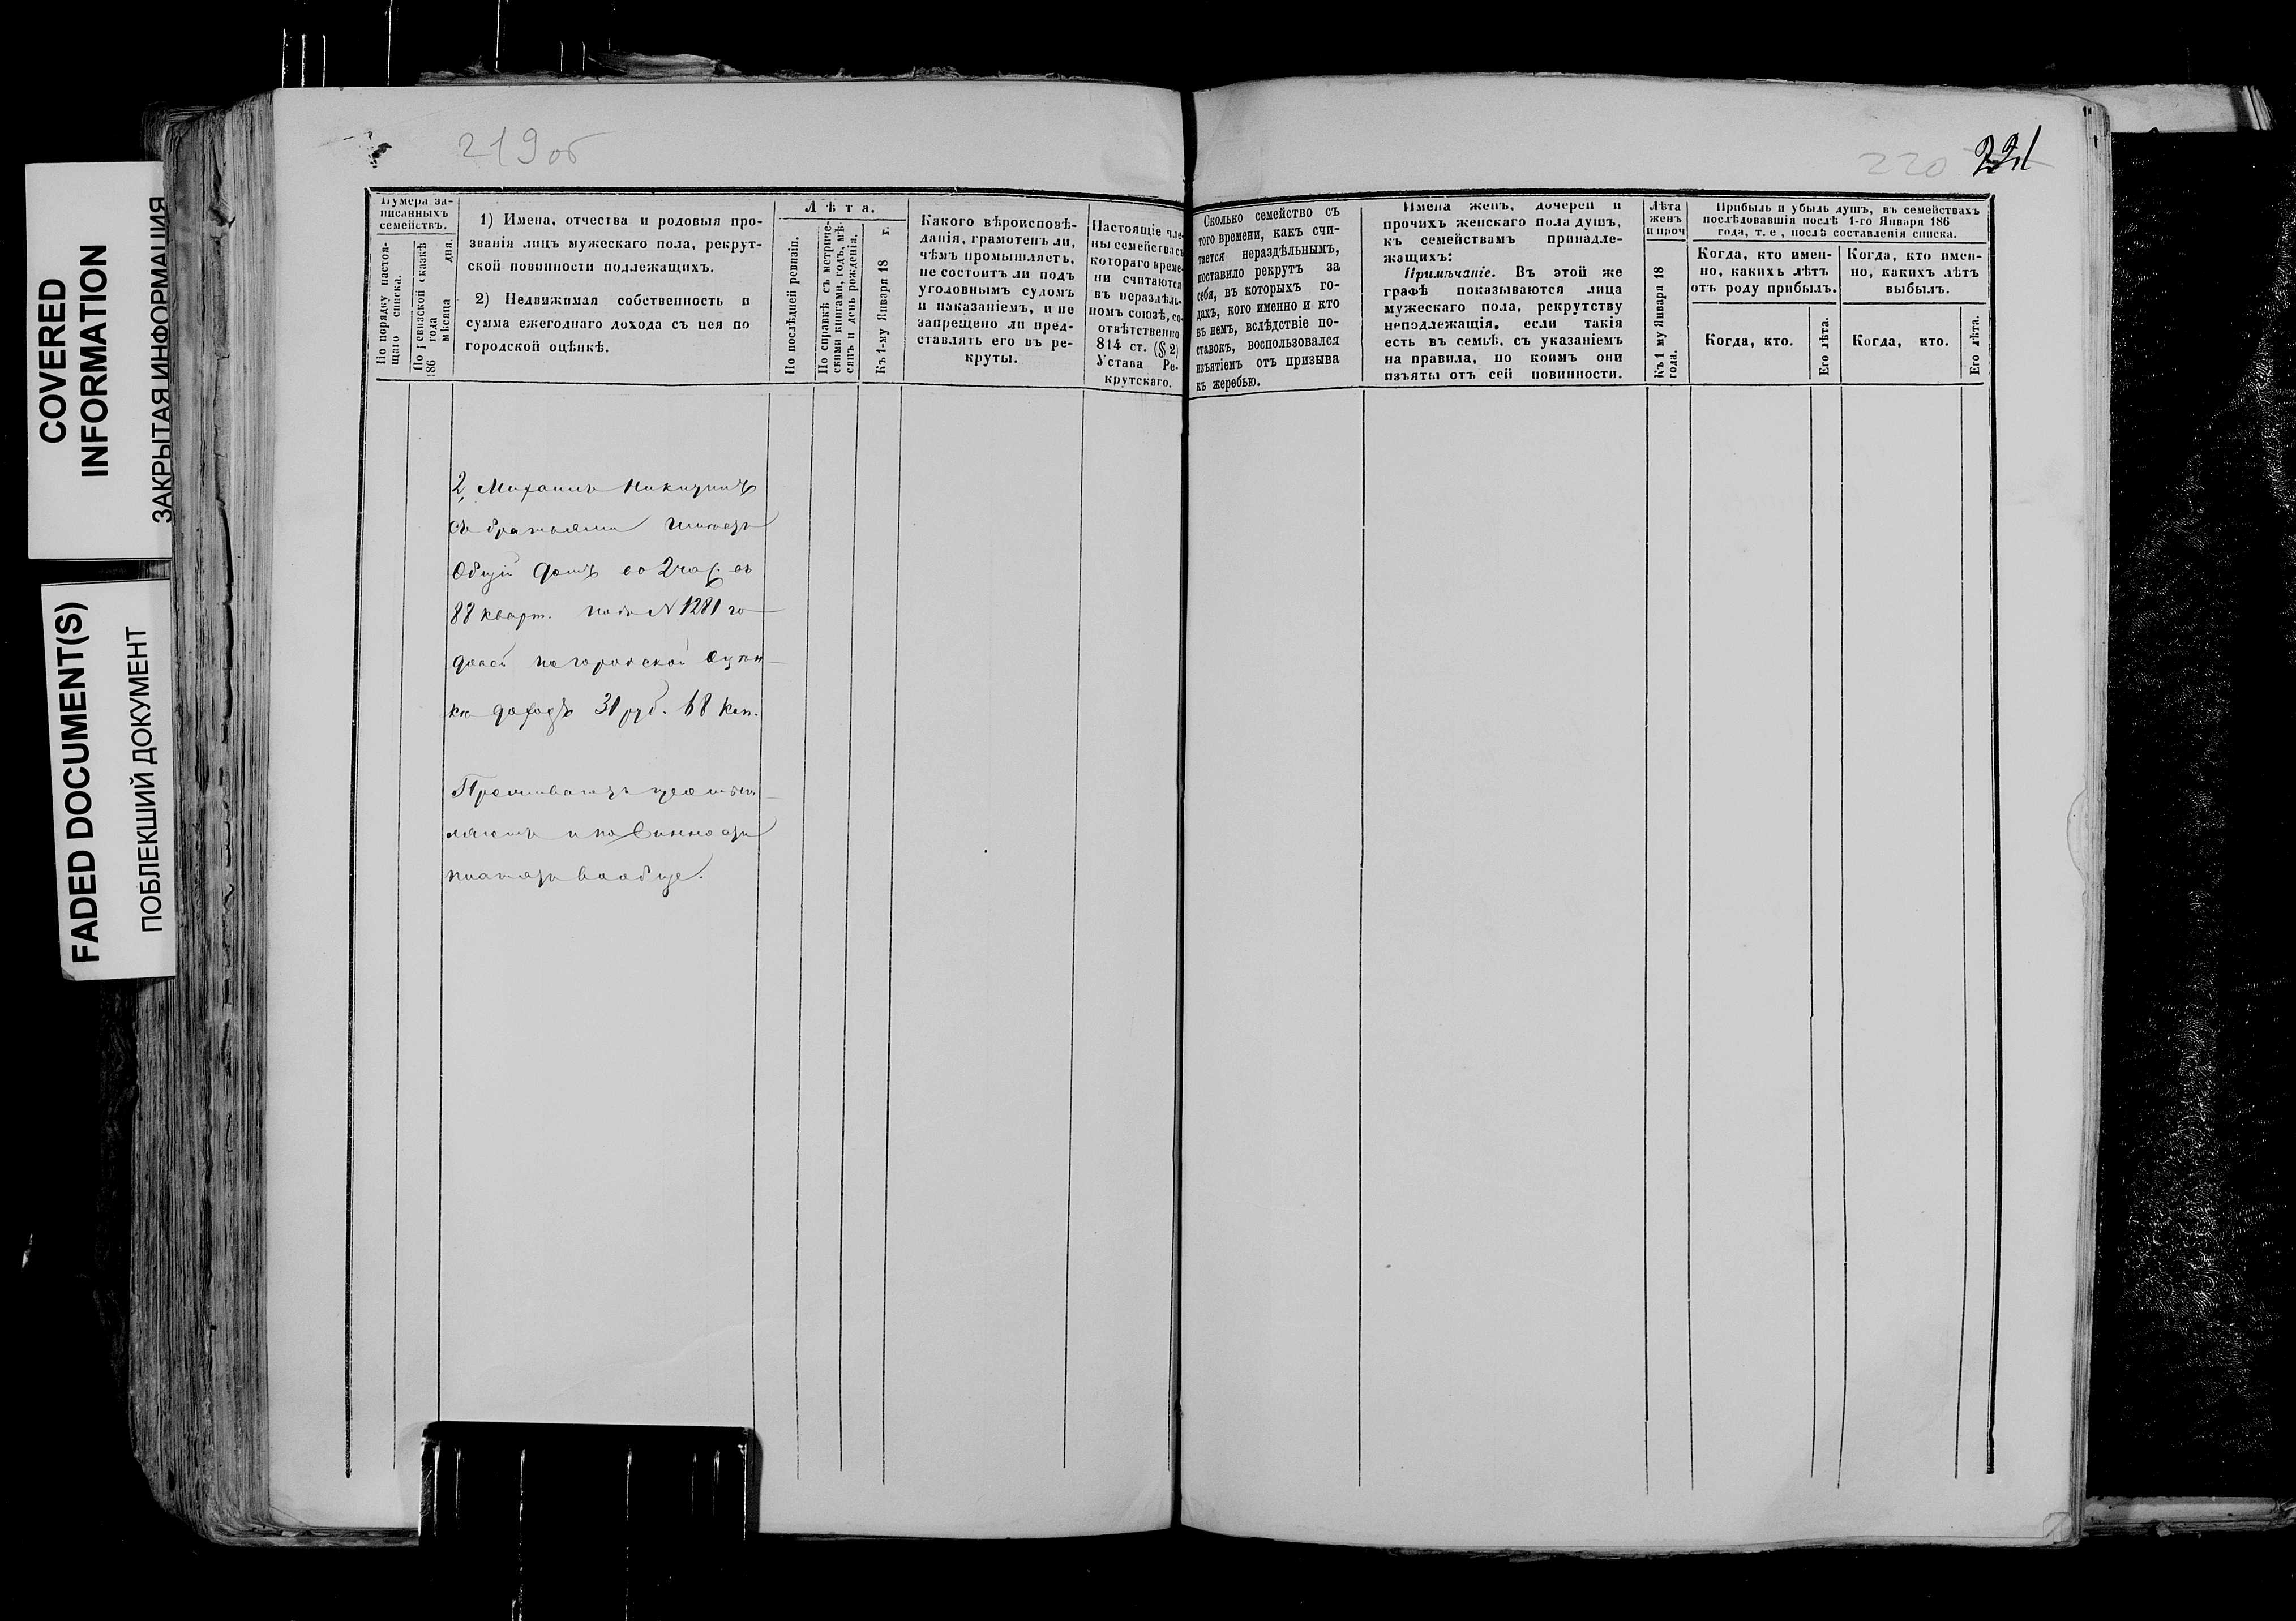 COVERED
INFORMATION
ЗАКРЫТАЯ ИНФОРМАЦИЯ
FADED DOCUMENT(S)
ПОБЛЕКШИЙ ДОКУМЕНТ
219об
Нумера за-
писанныхъ
семействъ.
По порядку настоя-
щаго списка.
По ревизской сказкѣ
186 года
мѣсяца дня.
1) Имена, отчества и родовыя про-
званія лицъ мужескаго пола, рекрут-
ской повинности подлежащихъ.
2) Недвижимая собственность и
сумма ежегоднаго дохода съ нея по
городской оцѣнкѣ.
Лѣта.
По послѣдней ревизіи.
По справкѣ съ метриче-
скими книгами, годъ, мѣ-
сяцъ и день рожденія.
Къ 1-му Января 18 г.
Какого вѣроисповѣ-
данія, грамотенъ ли,
чѣмъ промышляетъ,
не состоитъ ли подъ
уголовнымъ судомъ
и наказаніемъ, и не
запрещено ли пред-
ставлять его въ ре-
круты.
Настоящіе чле-
ны семейства съ
котораго време-
ни считаются
въ нераздѣль-
номъ союзѣ, со-
отвѣтственно
814 ст. (§ 2)
Устава Ре-
крутскаго.
2, Михаилъ Никитинъ
съ братьями имѣетъ
Общій домъ во 2 час. въ
88 кварт. подъ N 1281 го
доходъ 31 руб. 68 коп.
и повинности
платятъ вообще.
220 221
Сколько семейство съ
того времени, какъ счи-
тается нераздѣльнымъ,
поставило рекрутъ за
себя, въ которыхъ го-
дахъ, кого именно и кто
въ немъ, вслѣдствіе по-
ставокъ, воспользовался
изъятіемъ отъ призыва
къ жеребью.
Имена женъ, дочерей и
прочихъ женскаго пола душъ,
къ семействамъ принадле-
жащихъ:
Примѣчаніе. Въ этой же
графѣ показываются лица
мужескаго пола, рекрутству
неподлежащія, если такія
есть въ семьѣ, съ указаніемъ
на правила, по коимъ они
изъяты отъ сей повинности.
Лѣта
женъ
и проч
Къ 1 му Января 18
года.
Прибыль и убыль душъ, въ семействахъ
послѣдовавшія послѣ 1-го Января 186
года, т. е., послѣ составленія списка.
Когда, кто имен-
но, какихъ лѣтъ
отъ роду прибылъ.
Когда, кто.
Его лѣта.
Когда, кто имен-
но, какихъ лѣтъ
выбылъ.
Когда, кто.
Его лѣта.